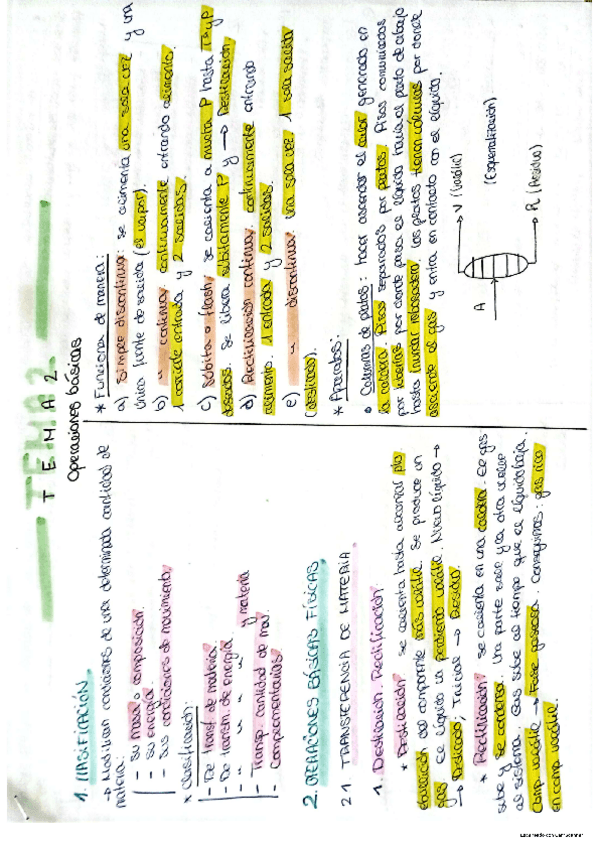 TEMA 2
TEMA 2
Operaciones básicas
1. CLASIFICACIÓN.
→ Modifican condiciones de una determinada cantidad de
materia:
- Su masa o composición.
- Su energía.
- Sus condiciones de movimiento
* Clasificación:
- De transf. de materia.
- De transfe. de energía.
- " " " " y materia
- Transp. cantidad de mov.
- Complementarias.
2. OPERACIONES BÁSICAS FÍSICAS
2.1 TRANSFERENCIA DE MATERIA
1. Destilación. Rectificación
* Destilación: se calienta hasta alcanzar pto
ebullición del componente más volátil. Se produce un
gas. El líquido va perdiendo volátil. Nuevo líquido →
→ Destilado; Inicial → Residuo.
* Rectificación: se calienta en una caldera. El gas
sube y se condensa. Una parte sale y la otra vuelve
al sistema. Gas sube al tiempo que el líquido baja.
Comp. volátil → Fase gaseosa. Conseguimos: gas rico
en comp. volátil.
* Funciona de manera:
a) Simple discontinua: se alimenta una sola vez y una
única fuente de salida (el vapor).
b) " continua: continuamente entrando alimento.
1 corriente entrada y 2 salidas.
c) Súbita o flash: se calienta a nueva P hasta Tª y P
deseadas. Se libera súbitamente P y → Destilación
d) Rectificación continua: continuamente entrando
alimento. 1 entrada y 2 salidas.
e) " discontinua: una sola vez 1 sola salida
(destilado).
* Aparatos:
• Columnas de platos: hacer ascender el calor generado en
la caldera. Pisos separados por platos. Pisos comunicados
por tuberías por donde pasa el líquido hasta el plato de abajo
hasta rebosadero. Los platos tienen válvulas por donde
asciende el gas y entra en contacto con el líquido.
A
V (Volátil)
R (Residuo)
Escaneado con CamScanner